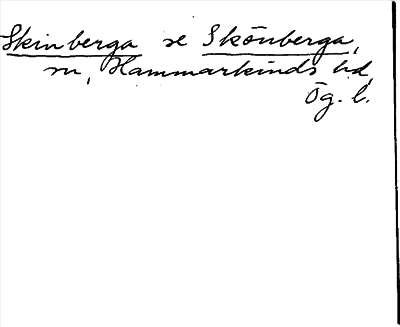 Skinberga se Skönberga,
sn, Hammarkinds hd,
Ög. l.